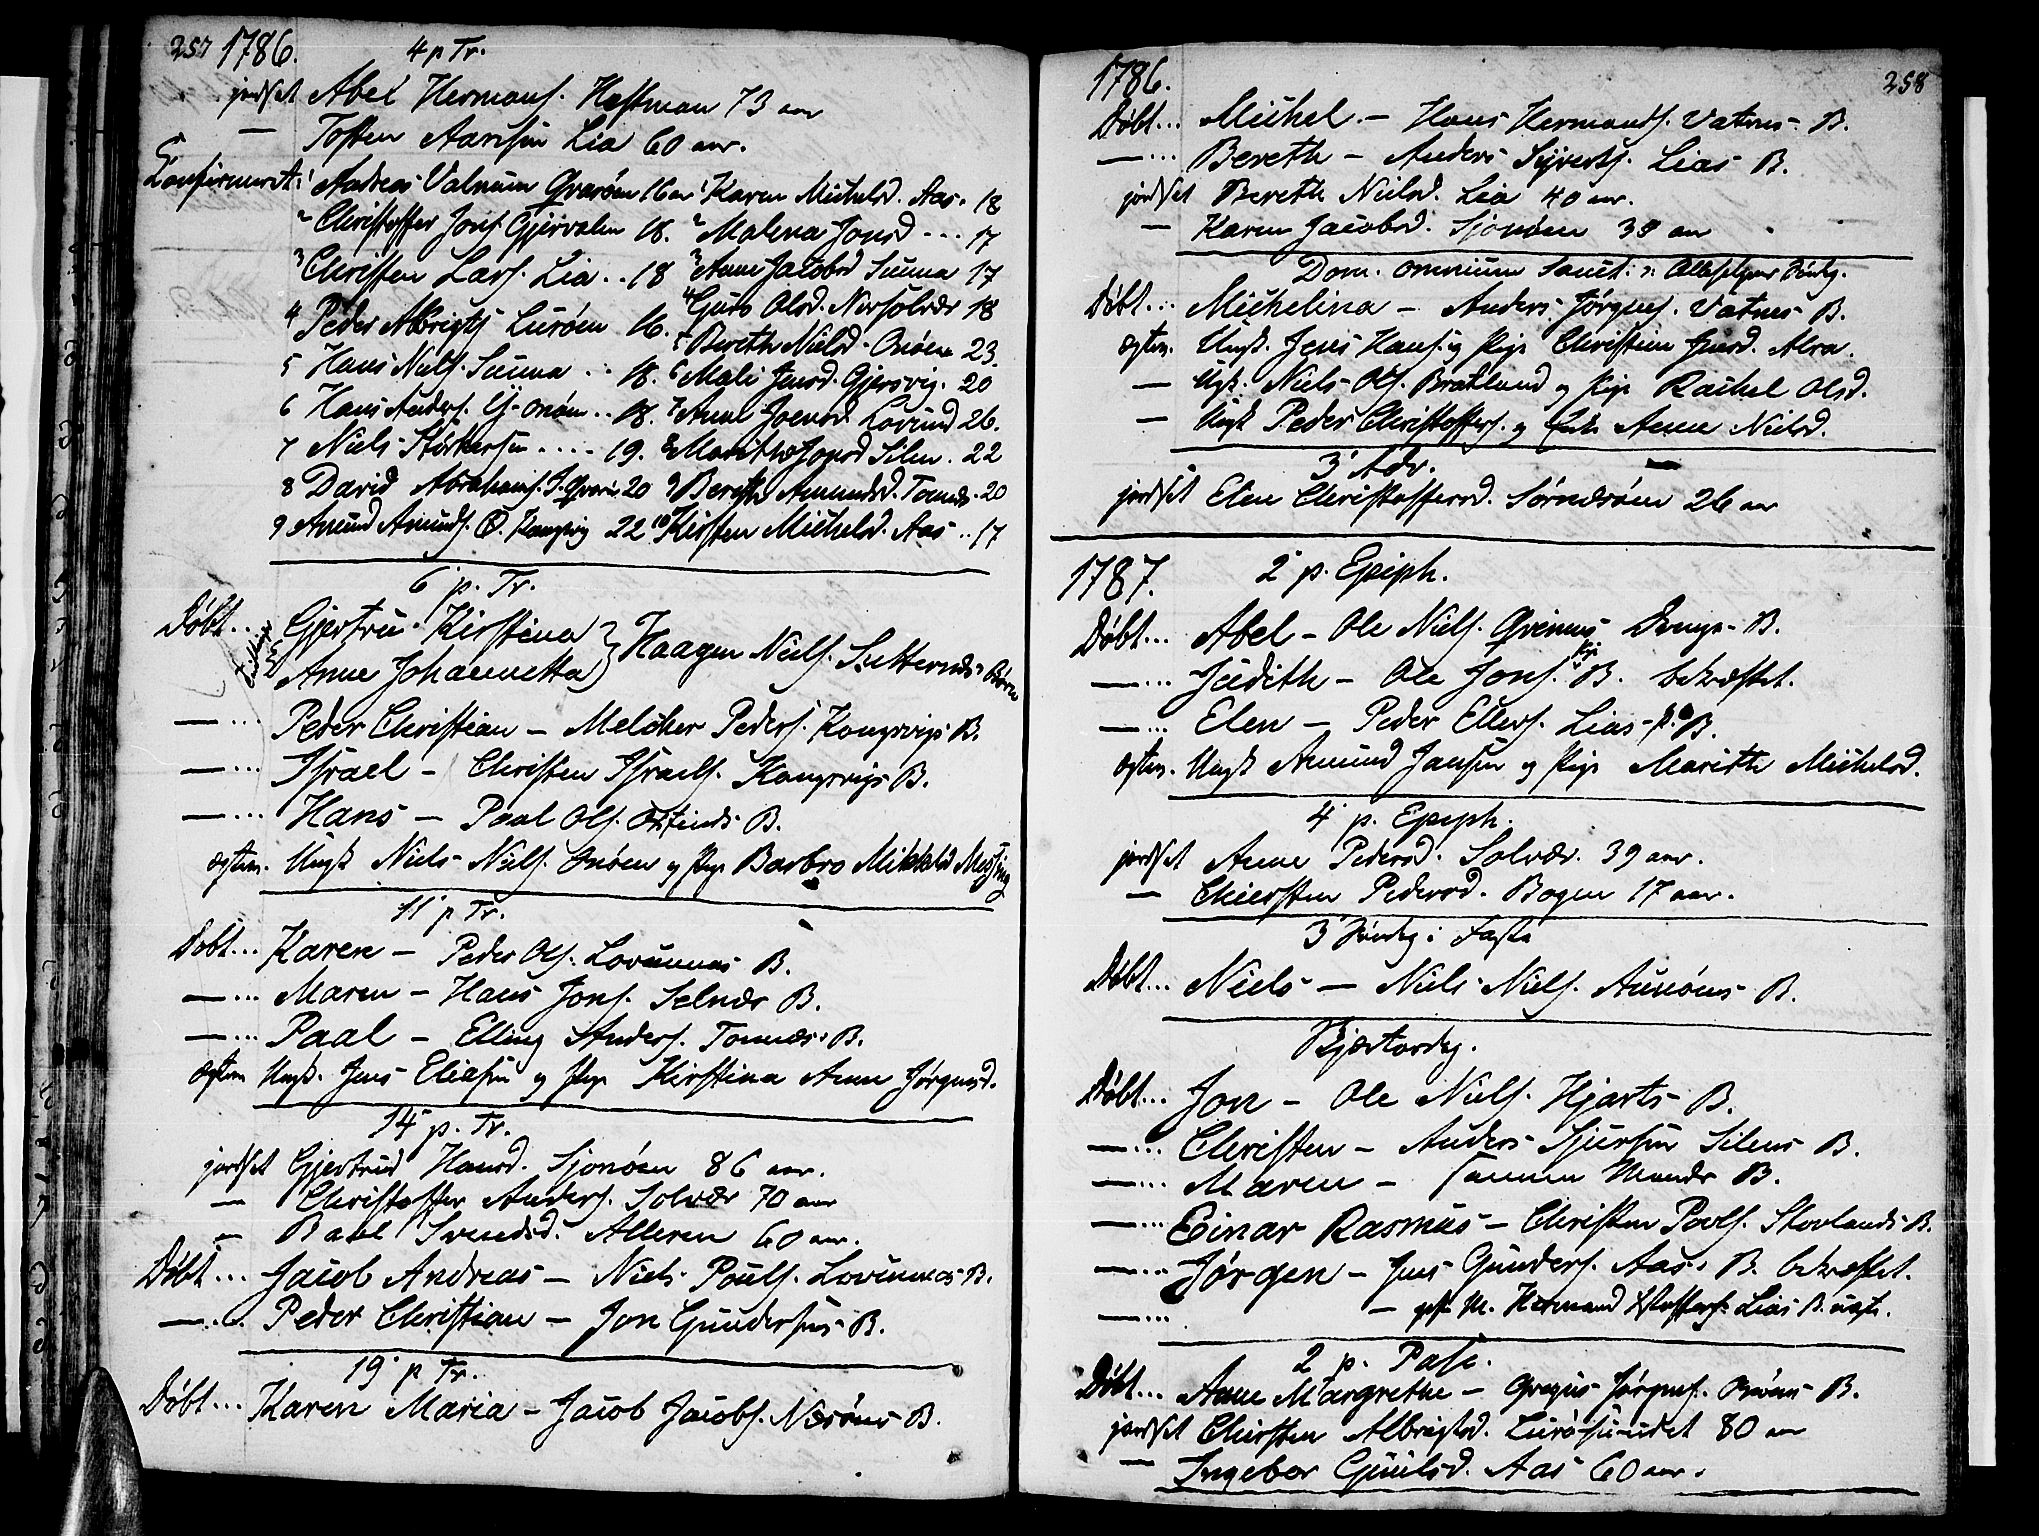 257 1786. 4 p Tr.
jordset Abel Hermans. Hestman 73 aar
— Tosten Aarnsen Lia 60 aar.
Confirmeret: 1 Andreas Valnum Qvarøen 16 aar 1 Karen Michelsd. Aas. 18
2 Christoffer Jons. Gjervalen 18. 2 Malena Jonsd --- 17
3 Christen Lars. Lia .. 18 3 Anne Jacobsd Sunna 17
4 Peder Albrigts. Lurøen 16. 4 Guro Olsd. Nersolvær 18
5 Hans Niels. Sunna .. 18. 5 Bereth Nielsd. Onøen 23.
6 Hans Anders. Onøen .. 18. 6 Mali Jensd. Gjersvig. 20
7 Niels Størkersen .... 19. 7 Anne Joensd. Lovund 26.
8 David Abrahams. 20 8 Marithe Jonsd Silen . 22
9 Amund Amunds. Kongsvig 22 9 Bereth Amundsd. Tonnæs. 20
10 Kirsten Michelsd. Aas .. 17
6 p. Tr.
Døbt... Gjertru Kirstina } Haagen Niels. Sletternæs Børn
Anne Johannetta
— ... Peder Christian — Melcher Peders. Kongsvigs B.
— ... Israel — Christen Israels. Kongsvigs B.
— ... Hans — Paal Ols. B.
ægtev. Ungk Niels Niels. Onøen og Pige Barbro Mikkelsd
11 p Tr.
Døbt... Karen — Peder Ols. Lovunnas B.
— ... Maren — Hans Jons. Selnær B.
— ... Paal — Elling Anders. Tonnæs B.
ægtev Ungk. Jens Eliasen og Pige Kirstina Anne Jørgensd.
14 p. Tr.
jordset Gjertrud Hansd. Sjonøen 86 aar.
— Christoffer Anders. Solvær 70 aar
— Baal Svendsd. Alleren 60 aar.
Døbt... Jacob Andreas — Niels Pouls. Lovunnas B.
— ... Peder Christian — Jon Gundersens B.
19 p Tr.
Døbt... Karen Maria — Jacob Jacobs. Næsøens B.
1786. 258
Døbt... Michel — Hans Hermands. Vatnes B.
— ... Bereth — Anders Syverts. Lias B.
jordset Bereth Nielsd. Lia 40 aar.
— Karen Jacobsd. Sjonøen 38 aar
Dom. omnium Sanct: Søndag.
Døbt... Michelina — Anders Jørgens. Vatnes B.
ægtev. Ungk. Jens Hans. og Pige Christien Jensd. Alra.
— Ungk. Niels Ols. Bratland og Pige Rachel Olsd.
— Ungk Peder Christoffers. og Enke Anne Nielsd.
3 Adv.
jordset Elen Christoffersd. Sørnæsøen 26 aar
1787. 2 p. Epiph.
Døbt... Abel — Ole Niels. B.
— ... Judith — Ole Jons. B. bekræftet.
— ... Elen — Peder Ellers. Lias B.
ægtev. Ungk Amund Jansen og Pige Marith Michelsd.
4 p. Epiph.
jordset Anne Pedersd. Solvær. 39 aar.
— Chiersten Pedersd. Bogen 17 aar.
3 Søndag i Faste
Døbt... Niels — Niels Niels. Aunøens B.
Skjærtorsdag.
Døbt... Jon — Ole Niels. Hjarts B.
— ... Christen — Anders Sjursen Silens B.
— ... Maren — B.
— ... Einar Rasmus — Christen Povls. Stovlands B.
— ... Jørgen — Jens Gunders. Aas B. bekræftet.
— ... — Hermand Lias B.
2 p. Pasc.
Døbt... Anne Margrethe — Gregus Jørgens. B.
jordset Chirsten Albrigtsd. Lurøsundet 80 aar
— Ingebor Gunlsd. Aas 60 aar.